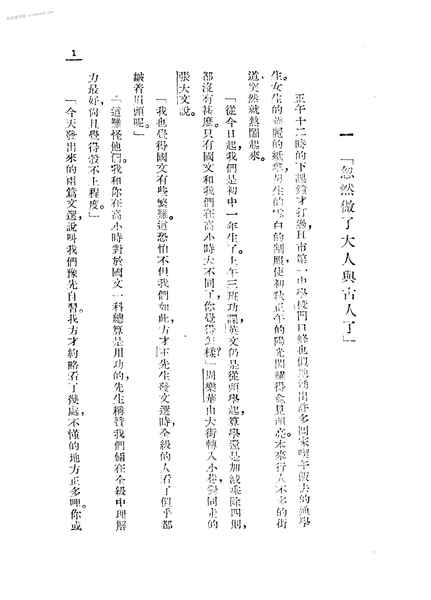 一 「忽然做了大人與古人了」
正午十二時的下課鐘才打過,H市第一中學校門口蜂也似地湧出許多回家喫午飯去的通學
生。女生的華麗的紙傘,男生的雪白的制服,使初秋正午的陽光閃耀得愈見明亮。本來行人不多的街
道突然就熱鬧起來。
「從今日起,我們是初中一年生了。上午三班功課,英文仍是從頭學起,算學還是加減乘除四則,
都沒有甚麼。只有國文和我們在高小時大不同了,你覺得怎樣?」周樂華由大街轉入小巷,對同走的
張大文說。
「我也覺得國文有些繁難。這恐怕不但我們如此,方才王先生發文選時,全級的人看了似乎都
皺着眉頭呢。」
「這難怪他們。我和你在高小時對於國文一科總算是用功的,先生稱讚我們倆在全級中理解
力最好,尚且覺得夠不上程度。」
「今天發出來的兩篇文選,說叫我們豫先自習。我方才約略看了幾處,不懂的地方正多哩。你或
1